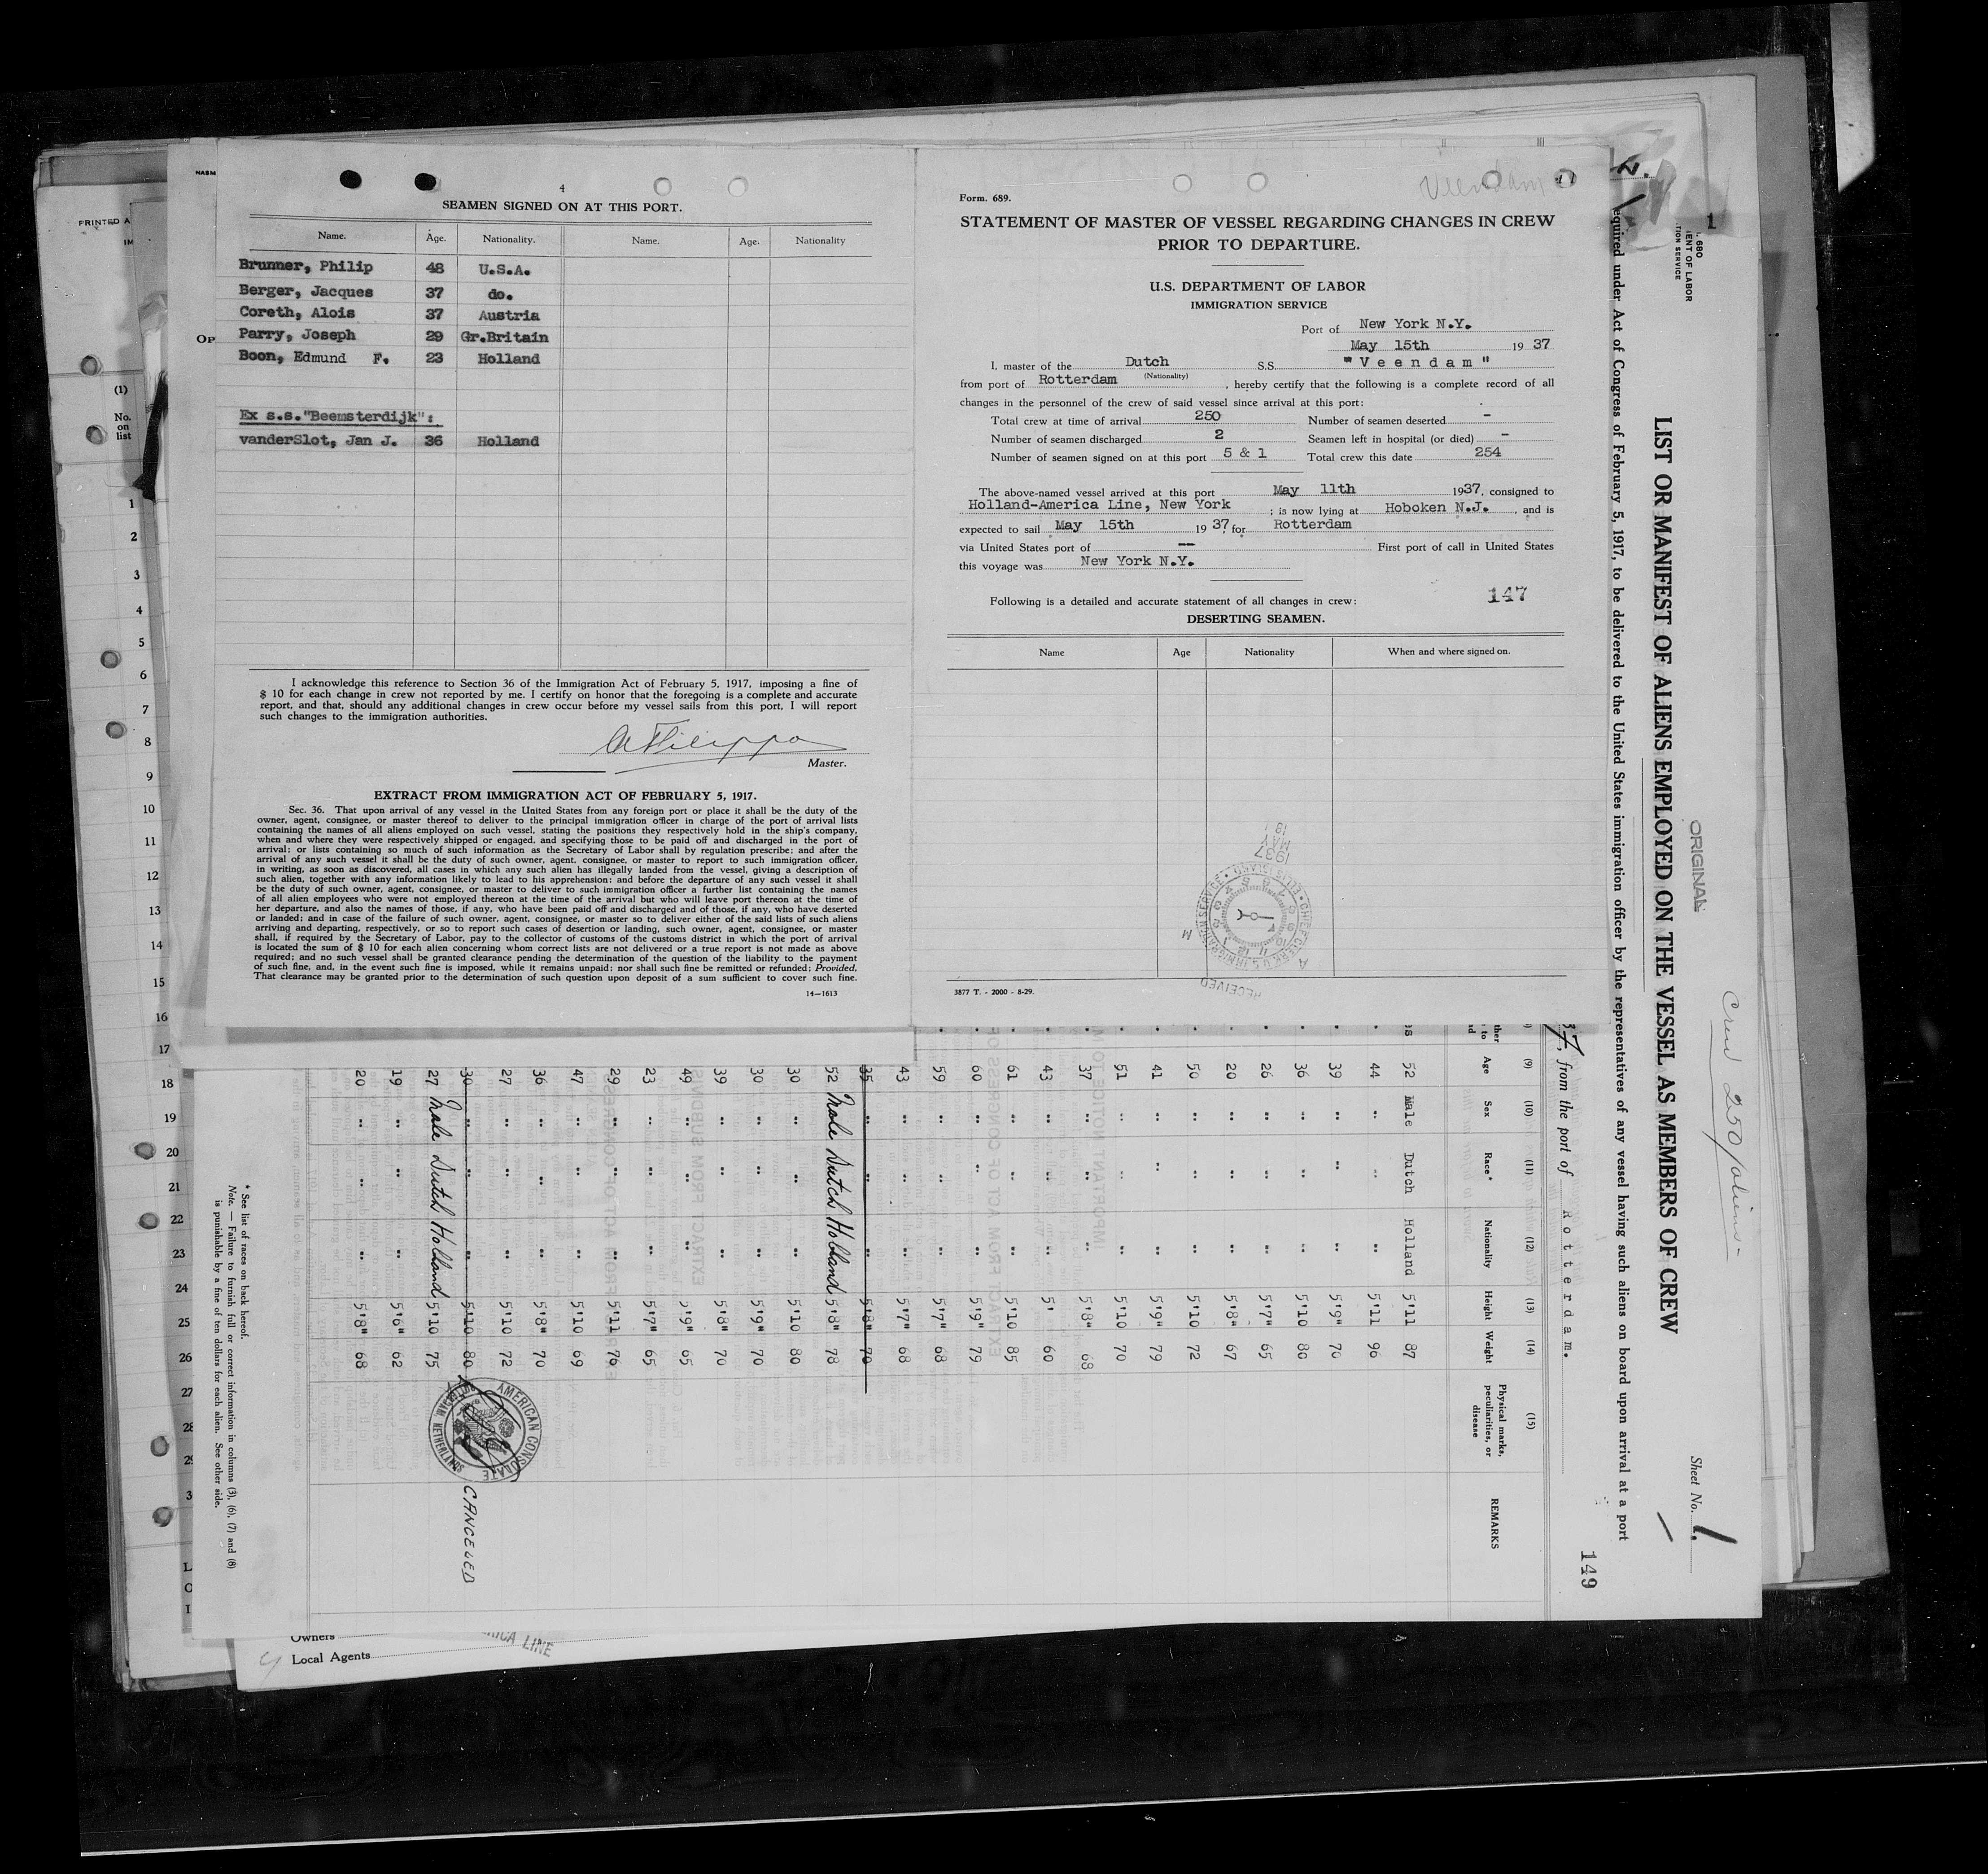 4
SEAMEN SIGNED ON AT THIS PORT.
Name. Age. Nationality. Name. Age. Nationality
Brunner, Philip 48 U.S.A.
Berger, Jacques 37 do.
Coreth, Alois 37 Austria
Parry, Joseph 29 Gr.Britain
Boon, Edmund F. 23 Holland
Ex s.s."Beemsterdijk":
vanderSlot, Jan J. 36 Holland
I acknowledge this reference to Section 36 of the Immigration Act of February 5, 1917, imposing a fine of
$ 10 for each change in crew not reported by me. I certify on honor that the foregoing is a complete and accurate
report, and that, should any additional changes in crew occur before my vessel sails from this port, I will report
such changes to the immigration authorities.
Master.
EXTRACT FROM IMMIGRATION ACT OF FEBRUARY 5, 1917.
Sec. 36. That upon arrival of any vessel in the United States from any foreign port or place it shall be the duty of the
owner, agent, consignee, or master thereof to deliver to the principal immigration officer in charge of the port of arrival lists
containing the names of all aliens employed on such vessel, stating the positions they respectively hold in the ship's company,
when and where they were respectively shipped or engaged, and specifying those to be paid off and discharged in the port of
arrival; or lists containing so much of such information as the Secretary of Labor shall by regulation prescribe; and after the
arrival of any such vessel it shall be the duty of such owner, agent, consignee, or master to report to such immigration officer,
in writing, as soon as discovered, all cases in which any such alien has illegally landed from the vessel, giving a description of
such alien, together with any information likely to lead to his apprehension; and before the departure of any such vessel it shall
be the duty of such owner, agent, consignee, or master to deliver to such immigration officer a further list containing the names
of all alien employees who were not employed thereon at the time of the arrival but who will leave port thereon at the time of
her departure, and also the names of those, if any, who have been paid off and discharged and of those, if any, who have deserted
or landed; and in case of the failure of such owner, agent, consignee, or master so to deliver either of the said lists of such aliens
arriving and departing, respectively, or so to report such cases of desertion or landing, such owner, agent, consignee, or master
shall, if required by the Secretary of Labor, pay to the collector of customs of the customs district in which the port of arrival
is located the sum of $ 10 for each alien concerning whom correct lists are not delivered or a true report is not made as above
required; and no such vessel shall be granted clearance pending the determination of the question of the liability to the payment
of such fine, and, in the event such fine is imposed, while it remains unpaid; nor shall such fine be remitted or refunded; Provided,
That clearance may be granted prior to the determination of such question upon deposit of a sum sufficient to cover such fine.
14—1613
Veendam
Form. 689.
STATEMENT OF MASTER OF VESSEL REGARDING CHANGES IN CREW
PRIOR TO DEPARTURE.
U.S. DEPARTMENT OF LABOR
IMMIGRATION SERVICE
Port of New York N.Y.
May 15th 1937
I, master of the Dutch S.S. "Veendam"
(Nationality)
from port of Rotterdam , hereby certify that the following is a complete record of all
changes in the personnel of the crew of said vessel since arrival at this port:
Total crew at time of arrival 250 Number of seamen deserted -
Number of seamen discharged 2 Seamen left in hospital (or died) -
Number of seamen signed on at this port 5 & 1 Total crew this date 254
The above-named vessel arrived at this port May 11th 1937, consigned to
Holland-America Line, New York ; is now lying at Hoboken N.J. , and is
expected to sail May 15th 1937, for Rotterdam
via United States port of -- First port of call in United States
this voyage was New York N.Y.
Following is a detailed and accurate statement of all changes in crew: 147
DESERTING SEAMEN.
Name Age Nationality When and where signed on.
RECEIVED
CHIEF CLERK U.S. IMMIGRATION SERVICE • ELLIS ISLAND
MAY
1937
3877 T. - 2000 - 8-29.
ORIGINAL
Sheet No. 1.
LIST OR MANIFEST OF ALIENS EMPLOYED ON THE VESSEL AS MEMBERS OF CREW
equired under Act of Congress of February 5, 1917, to be delivered to the United States immigration officer by the representatives of any vessel having such aliens on board upon arrival at a port
149
7, from the port of Rotterdam.
(9) (10) (11) (12) (13) (14) (15)
Age Sex Race* Nationality Height Weight Physical marks, peculiarities, or disease REMARKS
52 Male Dutch Holland 5'11 87
44 " " " 5'11 96
39 " " " 5'9" 70
36 " " " 5'10 80
26 " " " 5'7" 65
20 " " " 5'8" 67
50 " " " 5'10 72
41 " " " 5'9" 79
51 " " " 5'10 70
37 " " " 5'8" 68
43 " " " 5' 60
61 " " " 5'10 85
60 " " " 5'9" 79
59 " " " 5'7" 68
43 " " " 5'7" 68
35 " " " 5'8" 70
52 Male Dutch Holland 5'8" 78
30 " " " 5'10 80
30 " " " 5'9" 70
39 " " " 5'8" 70
49 " " " 5'9" 65
23 " " " 5'7" 65
29 " " " 5'11 76
47 " " " 5'10 69
36 " " " 5'8" 70
27 " " " 5'10 72
30 " " " 5'10 80 CANCELED
27 Male Dutch Holland 5'10 75
19 " " " 5'6" 62
20 " " " 5'8" 68
AMERICAN CONSULATE
NETHERLANDS
* See list of races on back hereof.
Note. — Failure to furnish full or correct information in columns (3), (6), (7) and (8)
is punishable by a fine of ten dollars for each alien. See other side.
PRINTED
(1)
No.
on
list
1
2
3
4
5
6
7
8
9
10
11
12
13
14
15
16
17
18
19
20
21
22
23
24
25
26
27
Owners
Local Agents
LINE